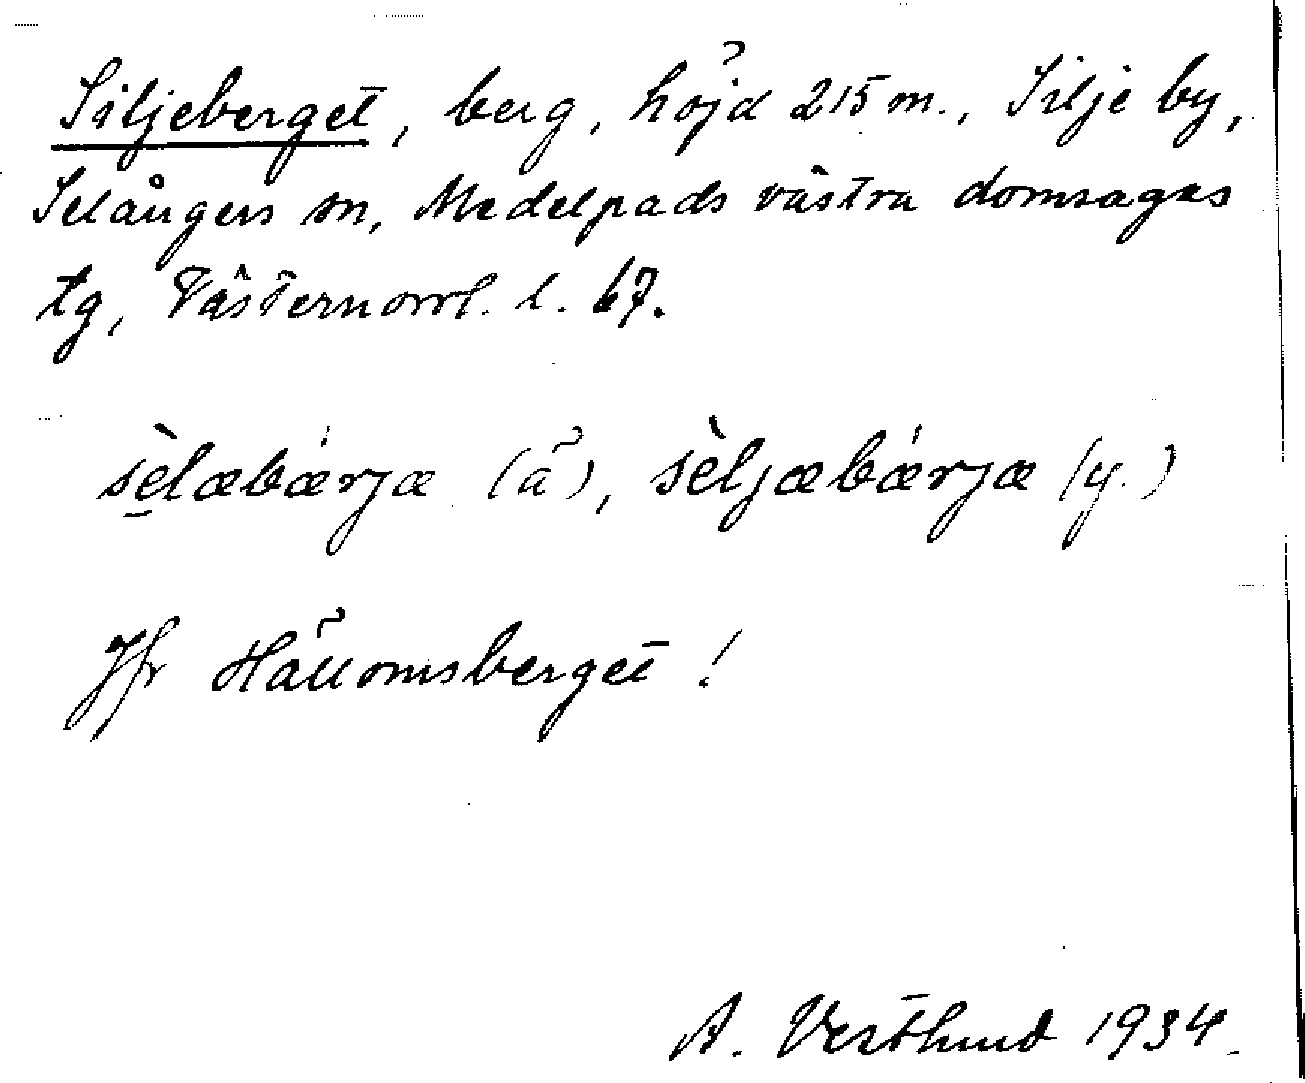 Siljeberget, berg, höjd 215 m., Silje by,
Selångers sn, Medelpads västra domsagas
tg, Västernorrl. l. 67.
sè̱læbǽrjæ (ä), sèljæbǽrjæ (y.)
Jfr Hällomsberget!
A. Vestlund 1934.